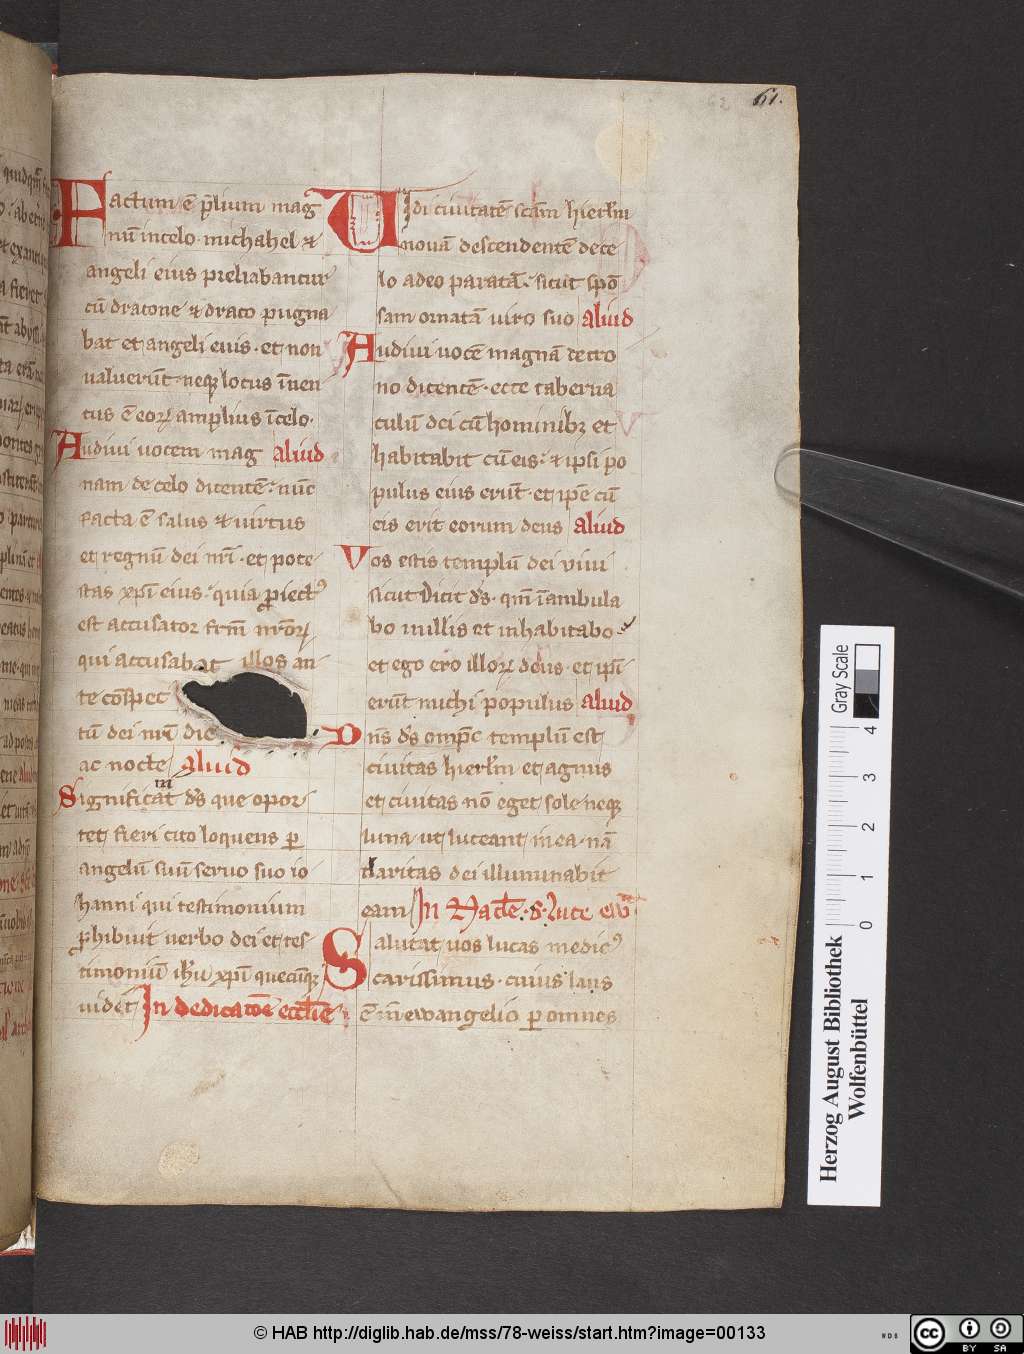 61.
Factum ē p̄lium mag
nū in celo. michahel &
angeli eius preliabantur
cū dracone & draco pugna
bat et angeli eius. et non
ualuerūt. neq; locus īuen
tus ē eoꝝ amplius ī celo.
Audiui uocem mag aliud
nam de celo dicentē. nūc
facta ē salus & uirtus
et regnū dei nr̄i. et pote
stas xp̄i eius. quia ꝓiectꝰ
est accusator frm̄ nr̄oꝝ
qui accusabat illos an
te cōspec
tū dei nr̄i die
ac nocte aliud
Significat d̄s que opor
tet fieri cito loquens ꝑ
angelū suū seruo suo io
hanni qui testimonium
ꝑhibuit uerbo dei et tes
timoniū ih̄u xp̄i quecūq;
uidet In dedicatōe eccl̄ie
Uidi ciuitatē scām hierl̄m
nouā descendentē de ce
lo a deo paratā. sicut spō
sam ornatā uiro suo aliud
Audiui uocē magnā de tro
no dicentē. ecce taberna
culū dei cū hominibꝫ et
habitabit cū eis. & ipsi po
pulus eius erūt. et ip̄e cū
eis erit eorum deus aliud
Vos estis templū dei viui
sicut dicit d̄s. qm̄ īambula
bo in illis et inhabitabo
et ego ero illoꝝ deus. et ip̄i
erūt michi populus aliud
Dn̄s d̄s omp̄c templū est
ciuitas hierl̄m et agnus
et ciuitas nō eget sole neq;
luna ut luceant in ea. nā
claritas dei illuminabit
eam In Nat̄le. S. Luce ew̄
Salutat uos lucas medicꝰ
carissimus. cuius laus
ē in ewangelio ꝑ omnes
Gray Scale
0 1 2 3 4
Herzog August Bibliothek
Wolfenbüttel
© HAB http://diglib.hab.de/mss/78-weiss/start.htm?image=00133
WDB
cc BY SA